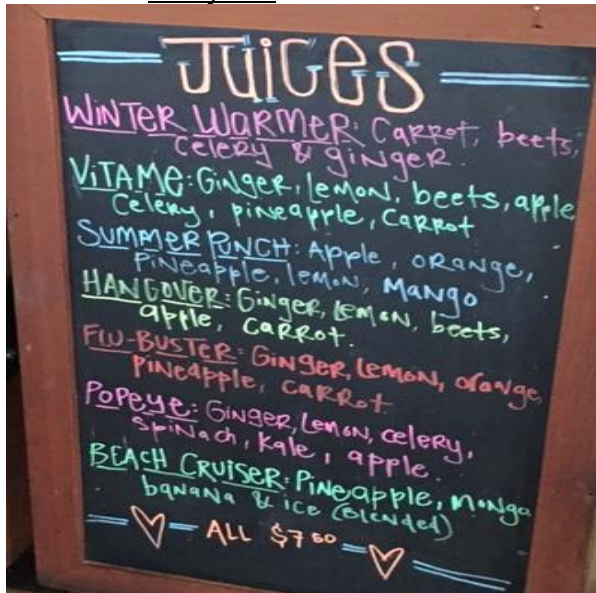 JUICES
WINTER WARMER: CARROT, beets,
celery & ginger.
VITAME: GINGER, LEMON, beets, apple
Celery, pineapple, CARROT
SUMMER PUNCH: APPLE, ORANGE,
PINEAPPLE, LEMON, MANGO
HANGOVER: GINGER, LEMON, beets,
apple, CARROT.
FLU-BUSTER: GINGER, LEMON, orange,
PINEAPPLE, CARROT
POPEYE: GINGER, LEMON, celery,
SPINACH, Kale, apple.
BEACH CRUISER: PINEAPPLE, Mango
banana & ice (Blended)
ALL $7 50